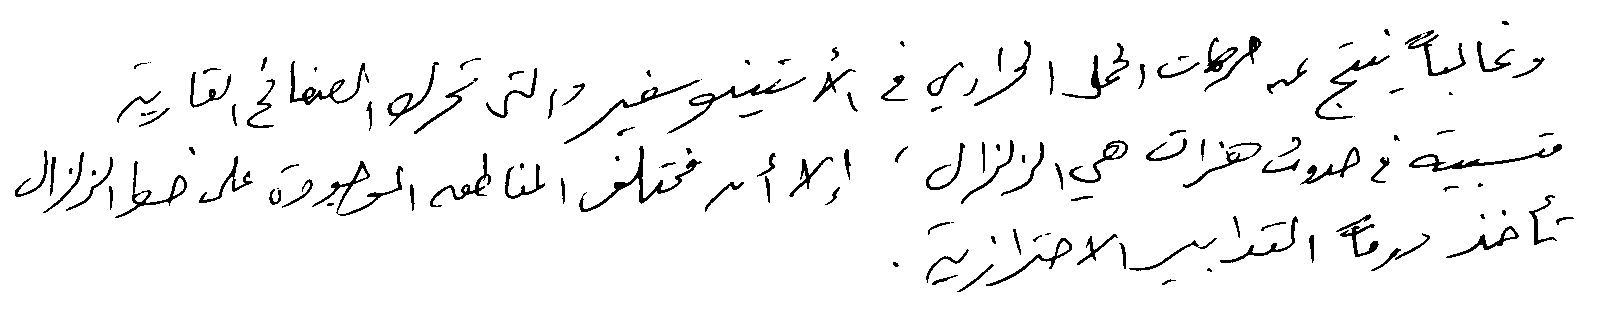 وغالباً ينتج عن حركات الحمل الحراري في الأستينوسفير والتي تحرك الصفائح القارية
متسببة في حدوث هزات هي الزلزال ، إلا أن مختلف المناطق الموجودة على خط الزلزال
تأخذ دوماً التدابير الاحترازية .